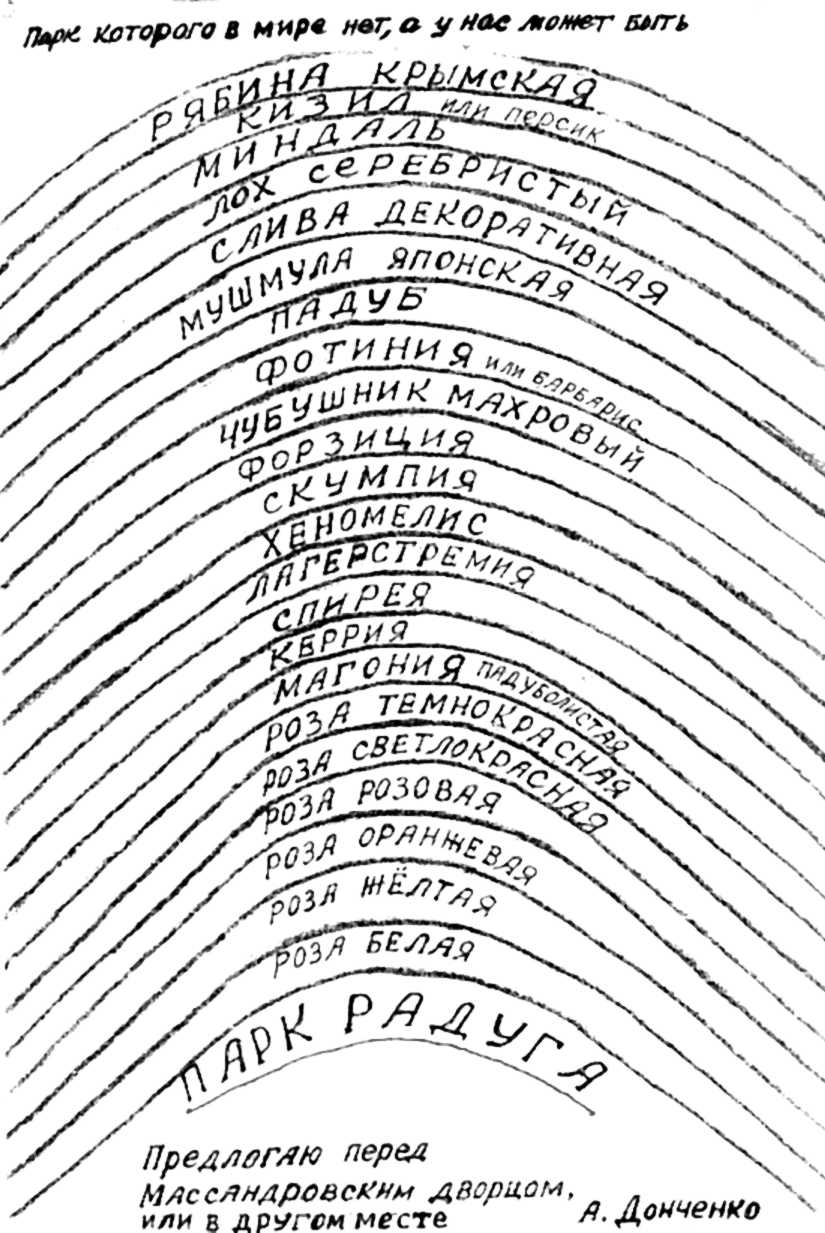 Парк которого в мире нет, а у нас может быть
РЯБИНА КРЫМСКАЯ
КИЗИЛ или персик
МИНДАЛЬ
ЛОХ СЕРЕБРИСТЫЙ
СЛИВА ДЕКОРАТИВНАЯ
МУШМУЛА ЯПОНСКАЯ
ПАДУБ
ФОТИНИЯ ИЛИ БАРБАРИС
ЧУБУШНИК МАХРОВЫЙ
ФОРЗИЦИЯ
СКУМПИЯ
ХЕНОМЕЛИС
ЛАГЕРСТРЕМИЯ
СПИРЕЯ
КЕРРИЯ
МАГОНИЯ ПАДУБОЛИСТАЯ
РОЗА ТЕМНОКРАСНАЯ
РОЗА СВЕТЛОКРАСНАЯ
РОЗА РОЗОВАЯ
РОЗА ОРАНЖЕВАЯ
РОЗА ЖЁЛТАЯ
РОЗА БЕЛАЯ
ПАРК РАДУГА
Предлогаю перед
Массандровским дворцом,
или в другом месте А. Донченко